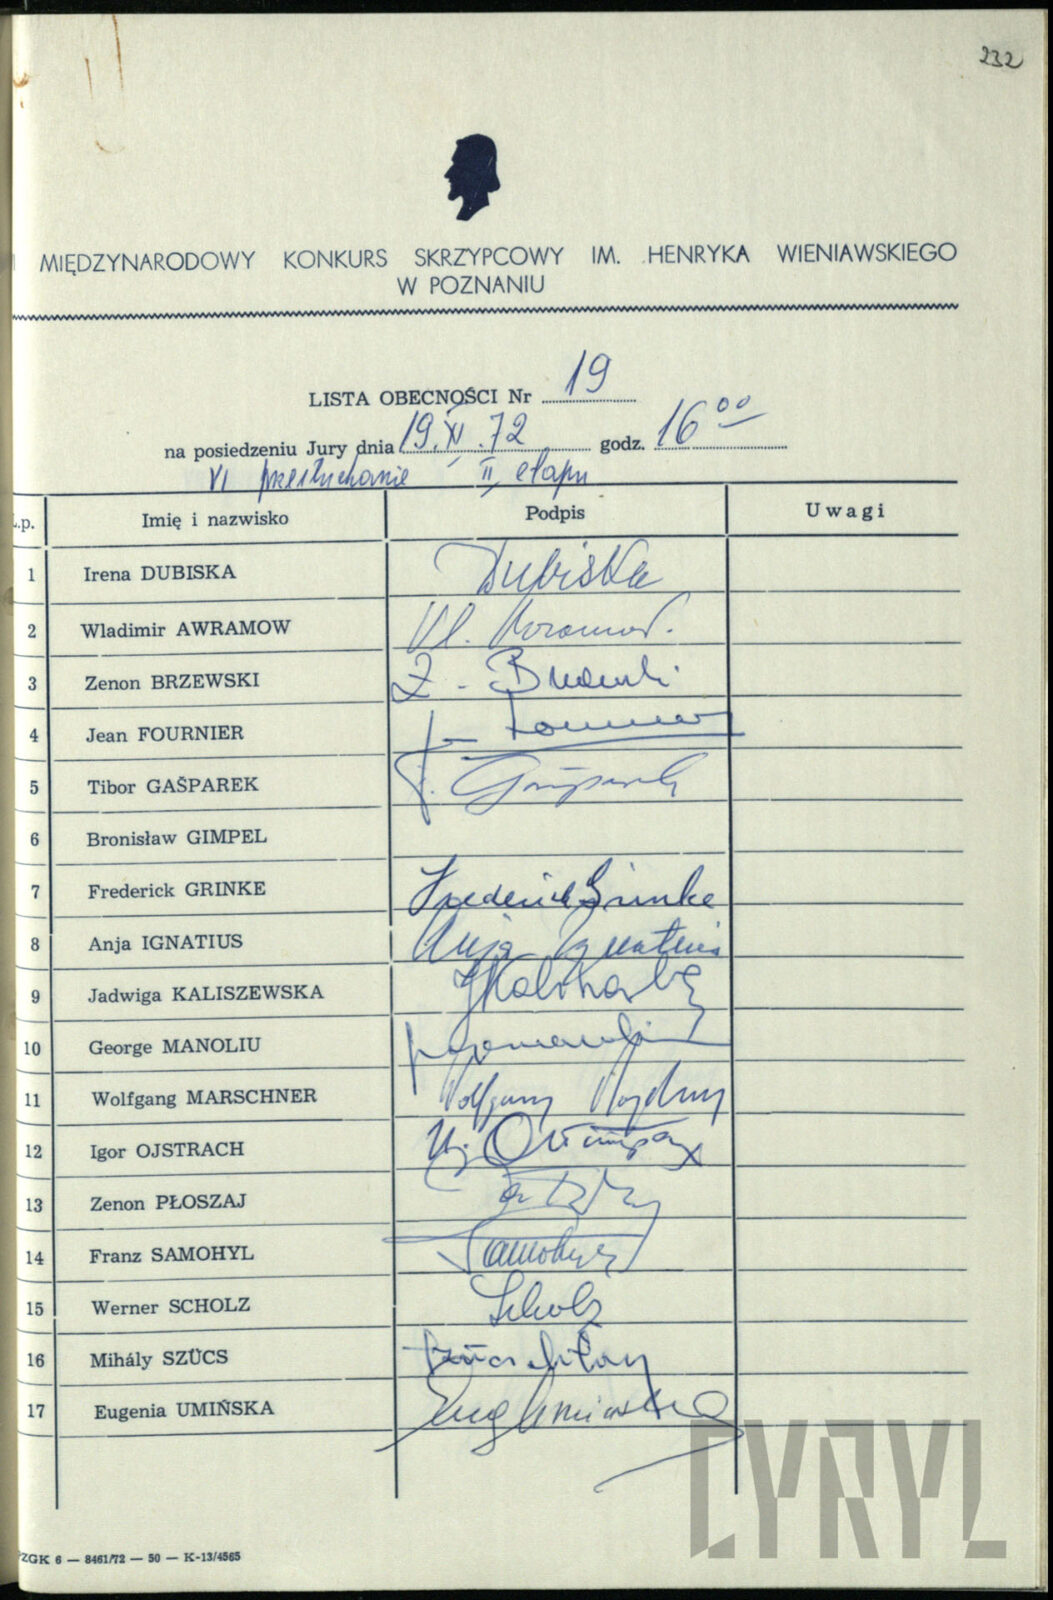 232
MIĘDZYNARODOWY KONKURS SKRZYPCOWY IM. HENRYKA WIENIAWSKIEGO
W POZNANIU
LISTA OBECNOŚCI Nr 19
na posiedzeniu Jury dnia 19.XI.72 godz. 16 00
VI przesłuchanie II etapu
L.p. Imię i nazwisko Podpis Uwagi
1 Irena DUBISKA Dubiska
2 Wladimir AWRAMOW Vl.
3 Zenon BRZEWSKI Z.
4 Jean FOURNIER
5 Tibor GAŠPAREK T. Gašparek
6 Bronisław GIMPEL
7 Frederick GRINKE Frederick Grinke
8 Anja IGNATIUS Anja Ignatius
9 Jadwiga KALISZEWSKA
10 George MANOLIU
11 Wolfgang MARSCHNER Wolfgang
12 Igor OJSTRACH
13 Zenon PŁOSZAJ
14 Franz SAMOHYL Samohyl
15 Werner SCHOLZ Scholz
16 Mihály SZÜCS Szücs
17 Eugenia UMIŃSKA Eug Umińska
ZGK 6 — 8461/72 — 50 — K-13/4565
CYRYL